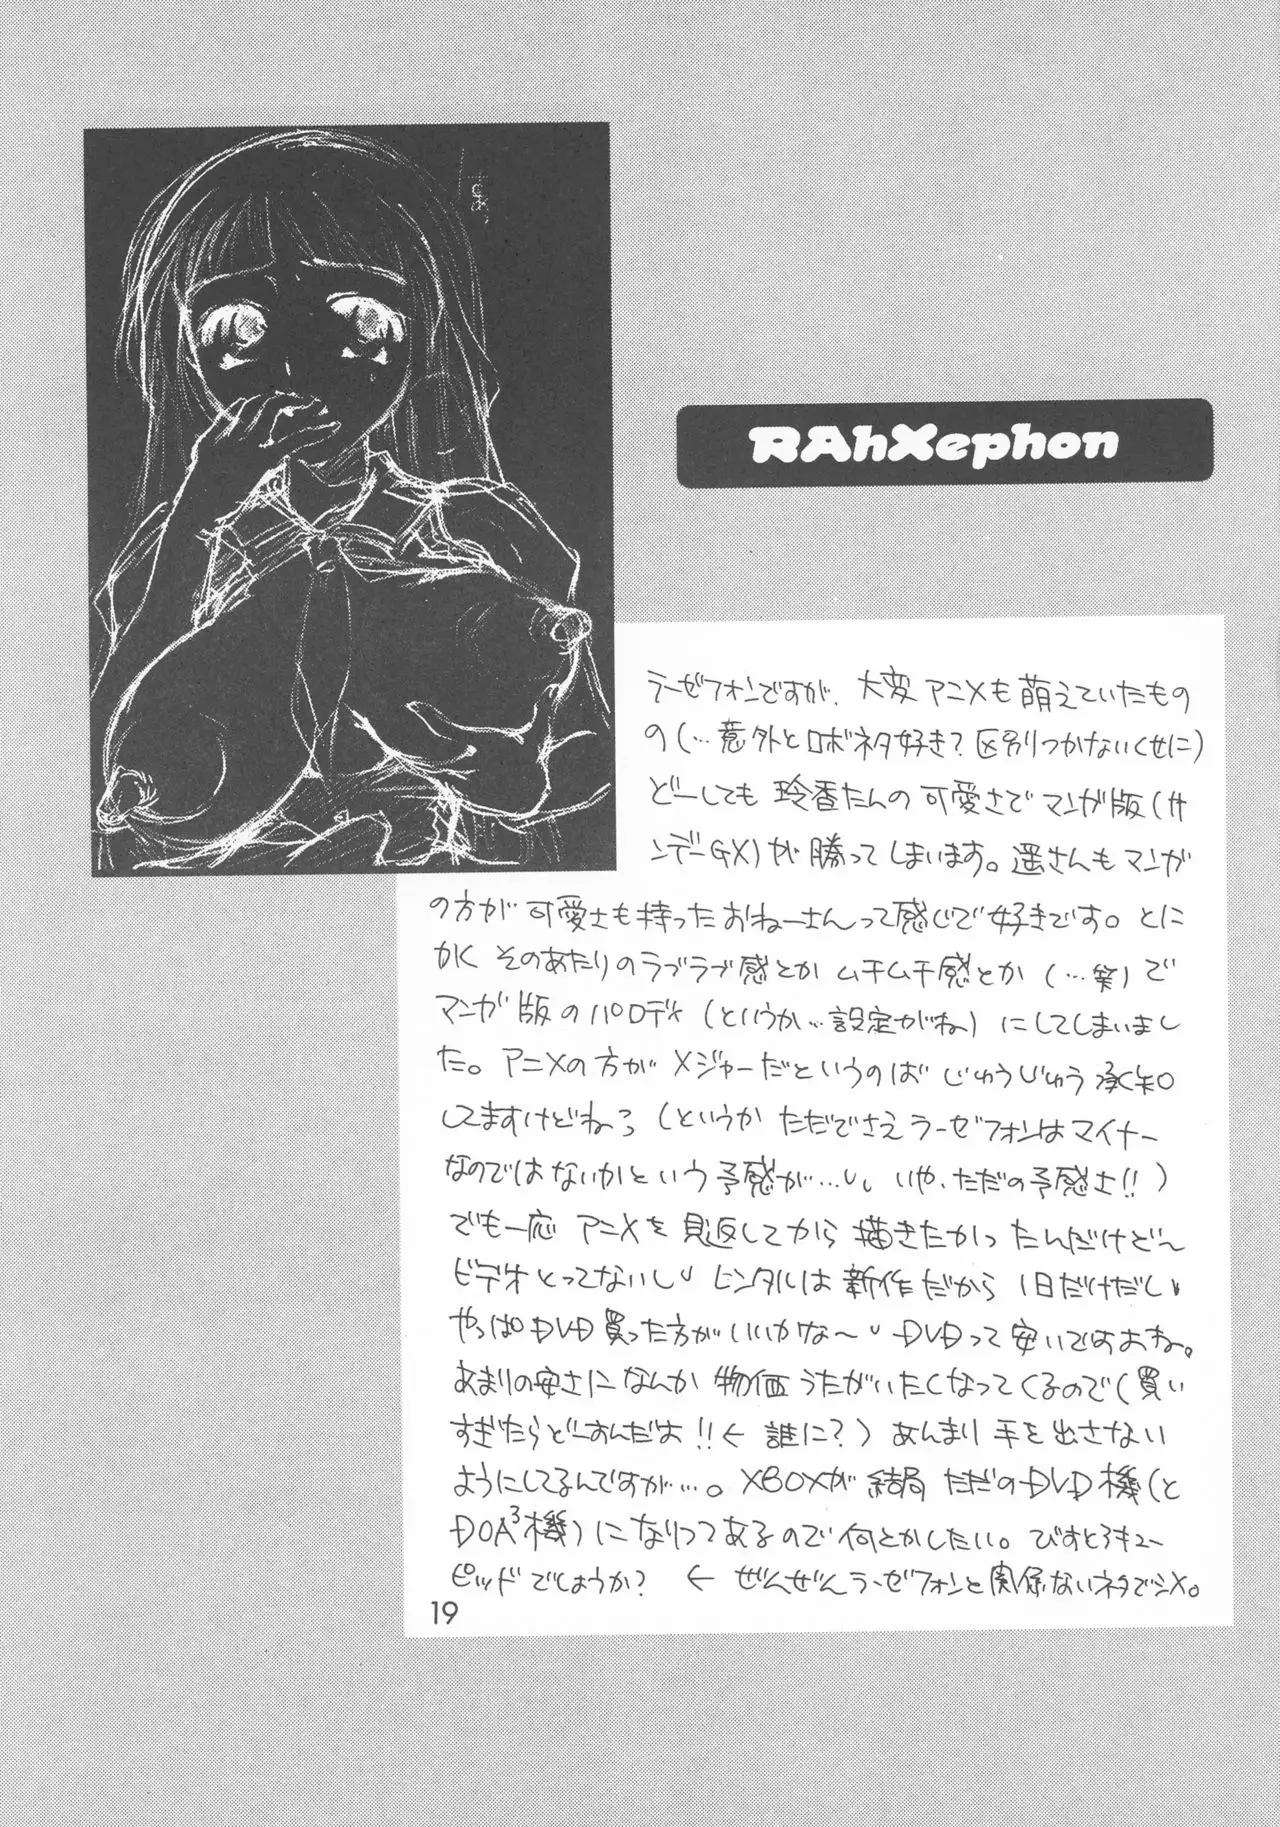 RAhXephon
ラーゼフォンですが、大変アニメも萌えていたもの
の(…意外とロボネタ好き?区別つかないくせに)
どーしても 玲香たんの可愛さでマンガ版(サ
ンデーGX)が勝ってしまいます。遥さんもマンガ
の方が可愛さも持ったおねーさんって感じで好きです。とに
かく そのあたりのラブラブ感とか ムチムチ感とか (…笑)で
マンガ版のパロディ (というか…設定がね) にしてしまいまし
た。アニメの方が メジャーだというのは じゅうじゅう承知
してますけどねっ (というか ただでさえラーゼフォンはマイナー
なのではないかという予感が…いやただの予感さ!!)
でも一応 アニメを見返してから 描きたかったんだけど〜
ビデオとってないし、レンタルは新作だから 1日だけだし、
やっぱDVD買った方がいいかな〜、DVDって安いですよね。
あまりの安さになんか 物価うたがいたくなってくるので(買い
すぎたらどーすんだよ!!← 誰に?) あんまり手を出さない
ようにしてるんですが…。XBOXが結局ただのDVD機(と
DOA3機)になりつつあるので何とかしたい。びすとろキュー
ピッドでしょうか? ← ぜんぜんラーゼフォンと関係ないネタでシメ。
19